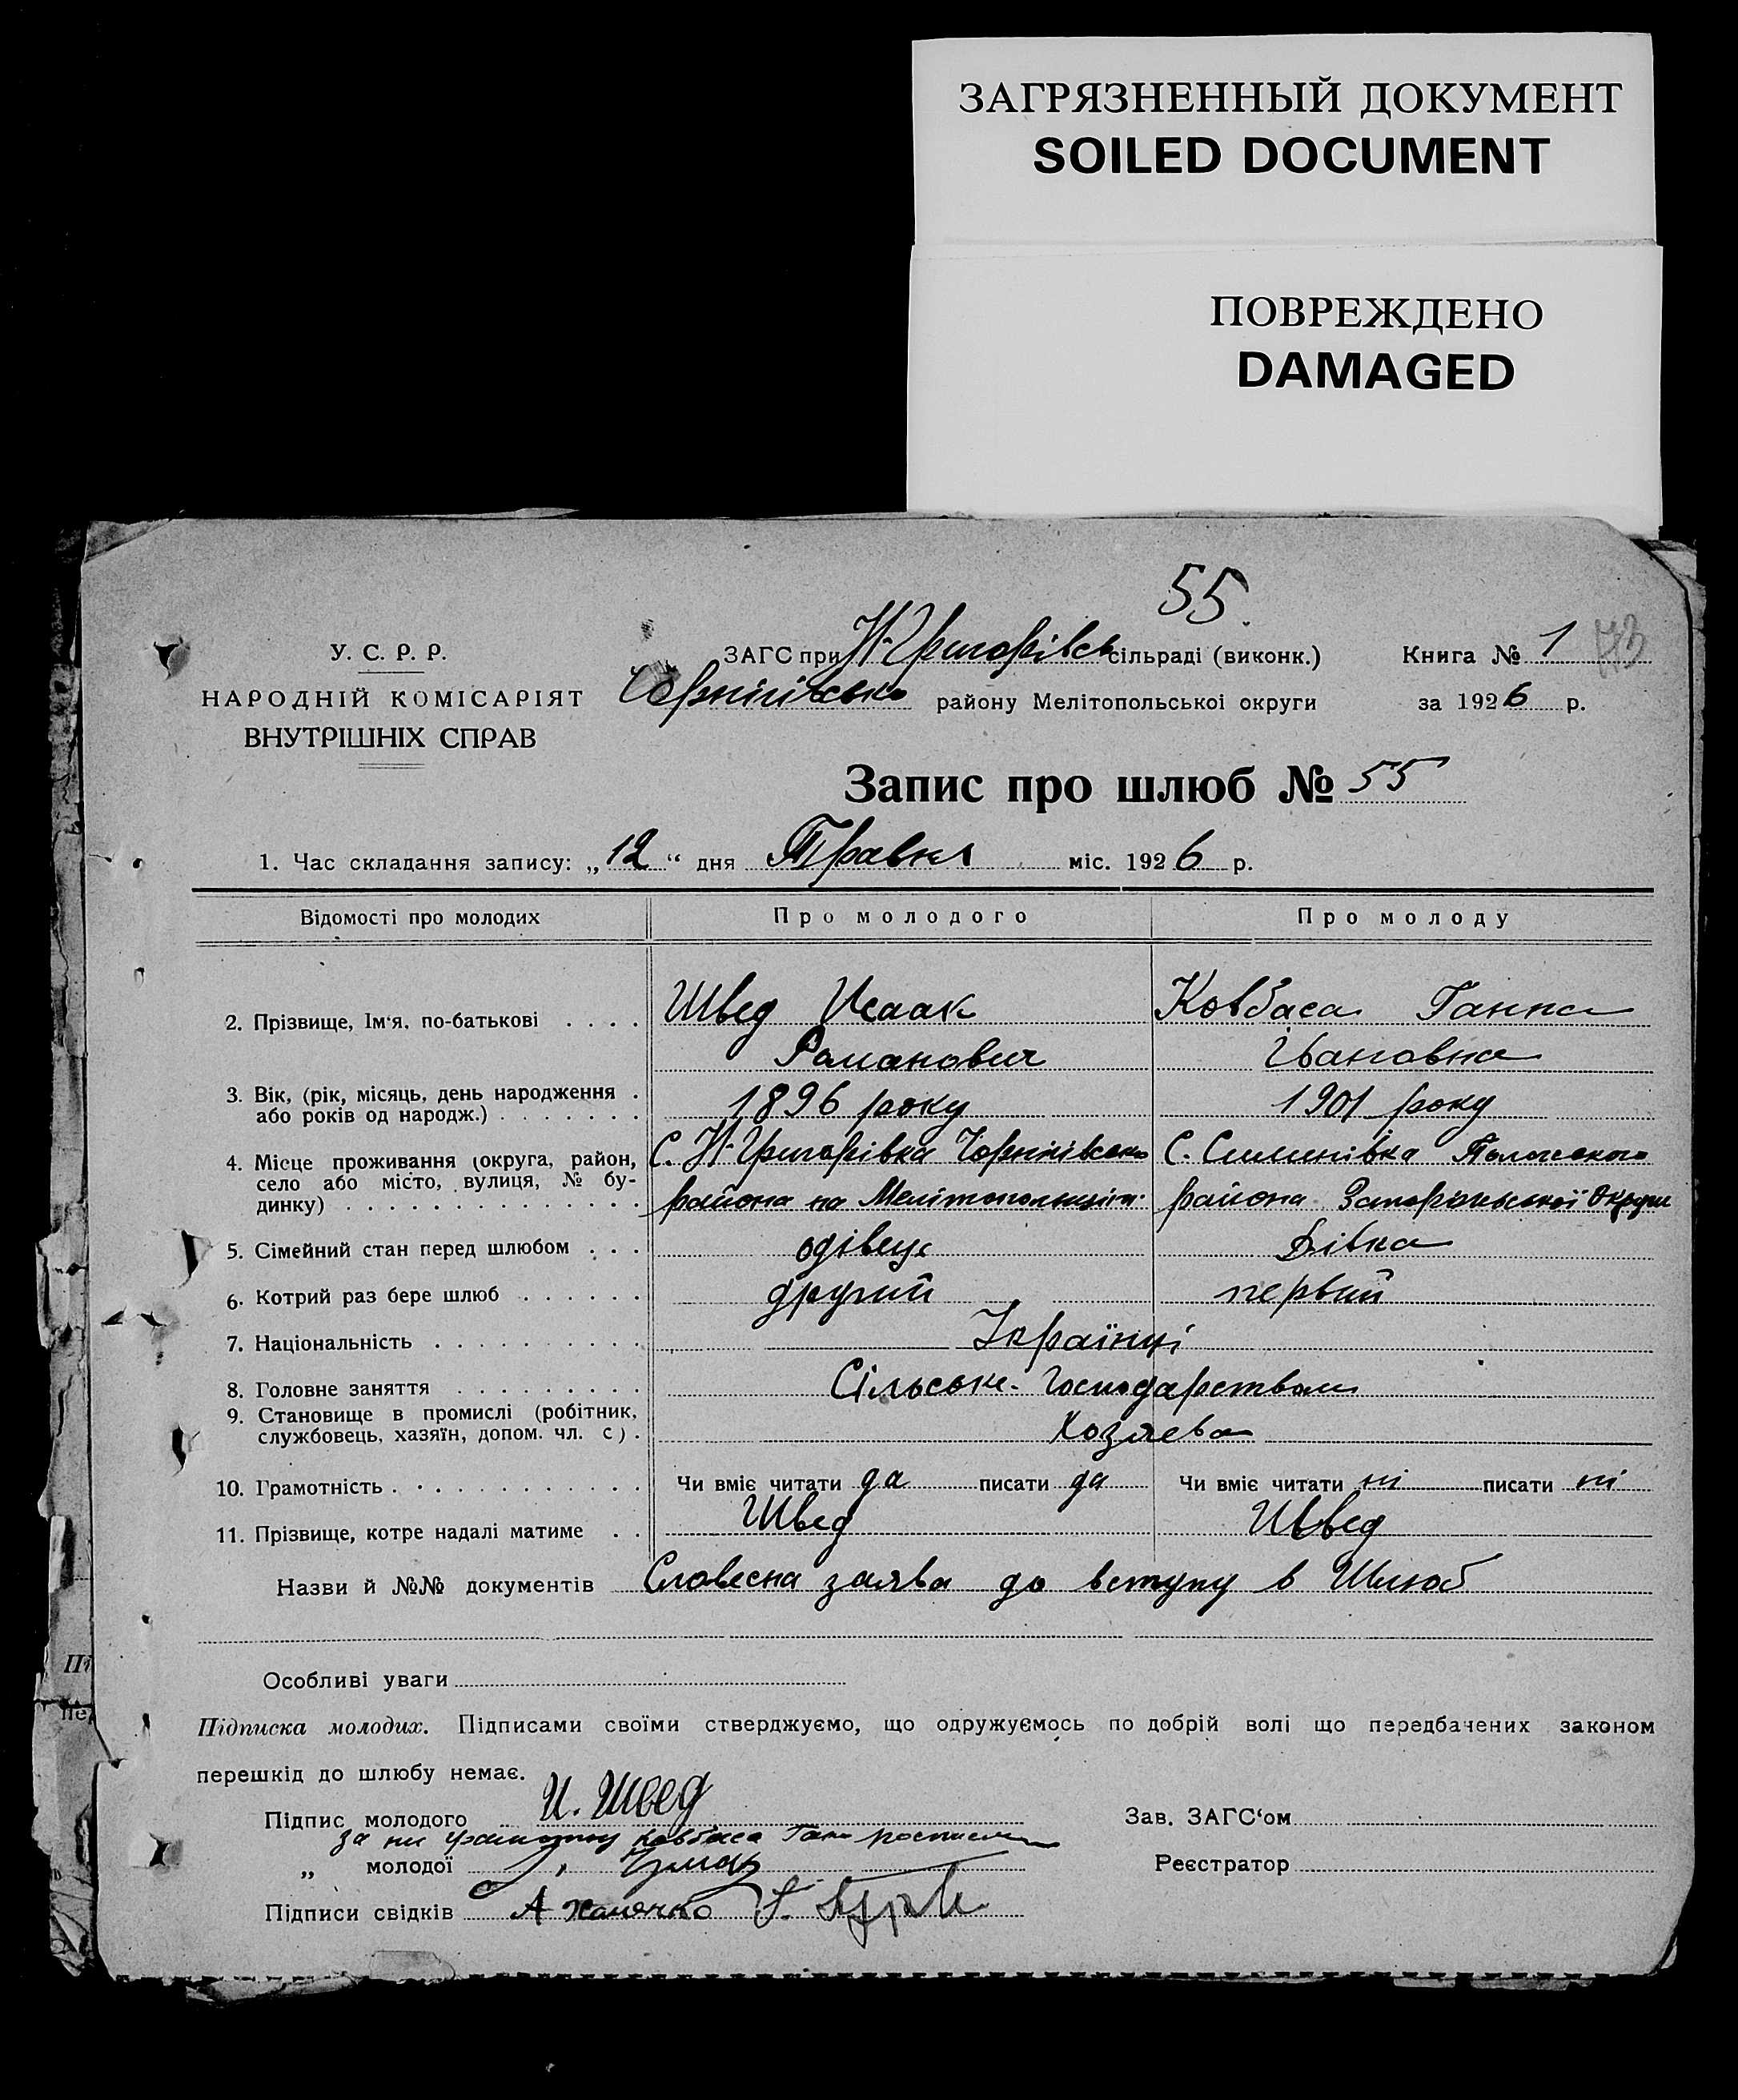 ЗАГРЯЗНЕННЫЙ ДОКУМЕНТ
SOILED DOCUMENT
ПОВРЕЖДЕНО
DAMAGED
55
У. С. Р. Р.
НАРОДНІЙ КОМІСАРІЯТ
ВНУТРІШНІХ СПРАВ
ЗАГС при Н-Григорівсь сільраді (виконк.)
Чернігівсько району Мелітопольської округи
Книга № 1 73
за 1926 р.
Запис про шлюб № 55
1. Час складання запису: „12“ дня Травня міс. 1926 р.
Відомості про молодих Про молодого Про молоду
2. Прізвище, Ім'я, по-батькові . . . . Швед Исаак Ковбаса Ганна
Романович Івановна
3. Вік, (рік, місяць, день народження . 1896 року 1901 року
або років од народж.) . . . . . . .
4. Місце проживання (округа, район, С. Н-Григорівка Чернігівсько С. Семенівка Пологського
село або місто, вулиця, № бу-
динку) . . . . . . . . . . . . . . района на Мелітопольщіні района Запоріжської Округи
5. Сімейний стан перед шлюбом . . . одівець Дівка
6. Котрий раз бере шлюб . . . . . . другий первий
7. Національність . . . . . . . . . . Українці
8. Головне заняття . . . . . . . . . Сільське-Господарством
9. Становище в промислі (робітник,
службовець, хазяїн, допом. чл. с) . Хозяева
10. Грамотність . . . . . . . . . . . Чи вміє читати да писати да Чи вміє читати ні писати ні
11. Прізвище, котре надалі матиме . . Швед Швед
Назви й №№ документів Словесна заява до вступу в Шлюб
Особливі уваги
Підписка молодих. Підписами своїми стверджуємо, що одружуємось по добрій волі що передбачених законом
перешкід до шлюбу немає.
Підпис молодого И. Швед Зав. ЗАГС‘ом
за не грамотну Ковбаса Ган
„ молодої Реєстратор
Підписи свідків А